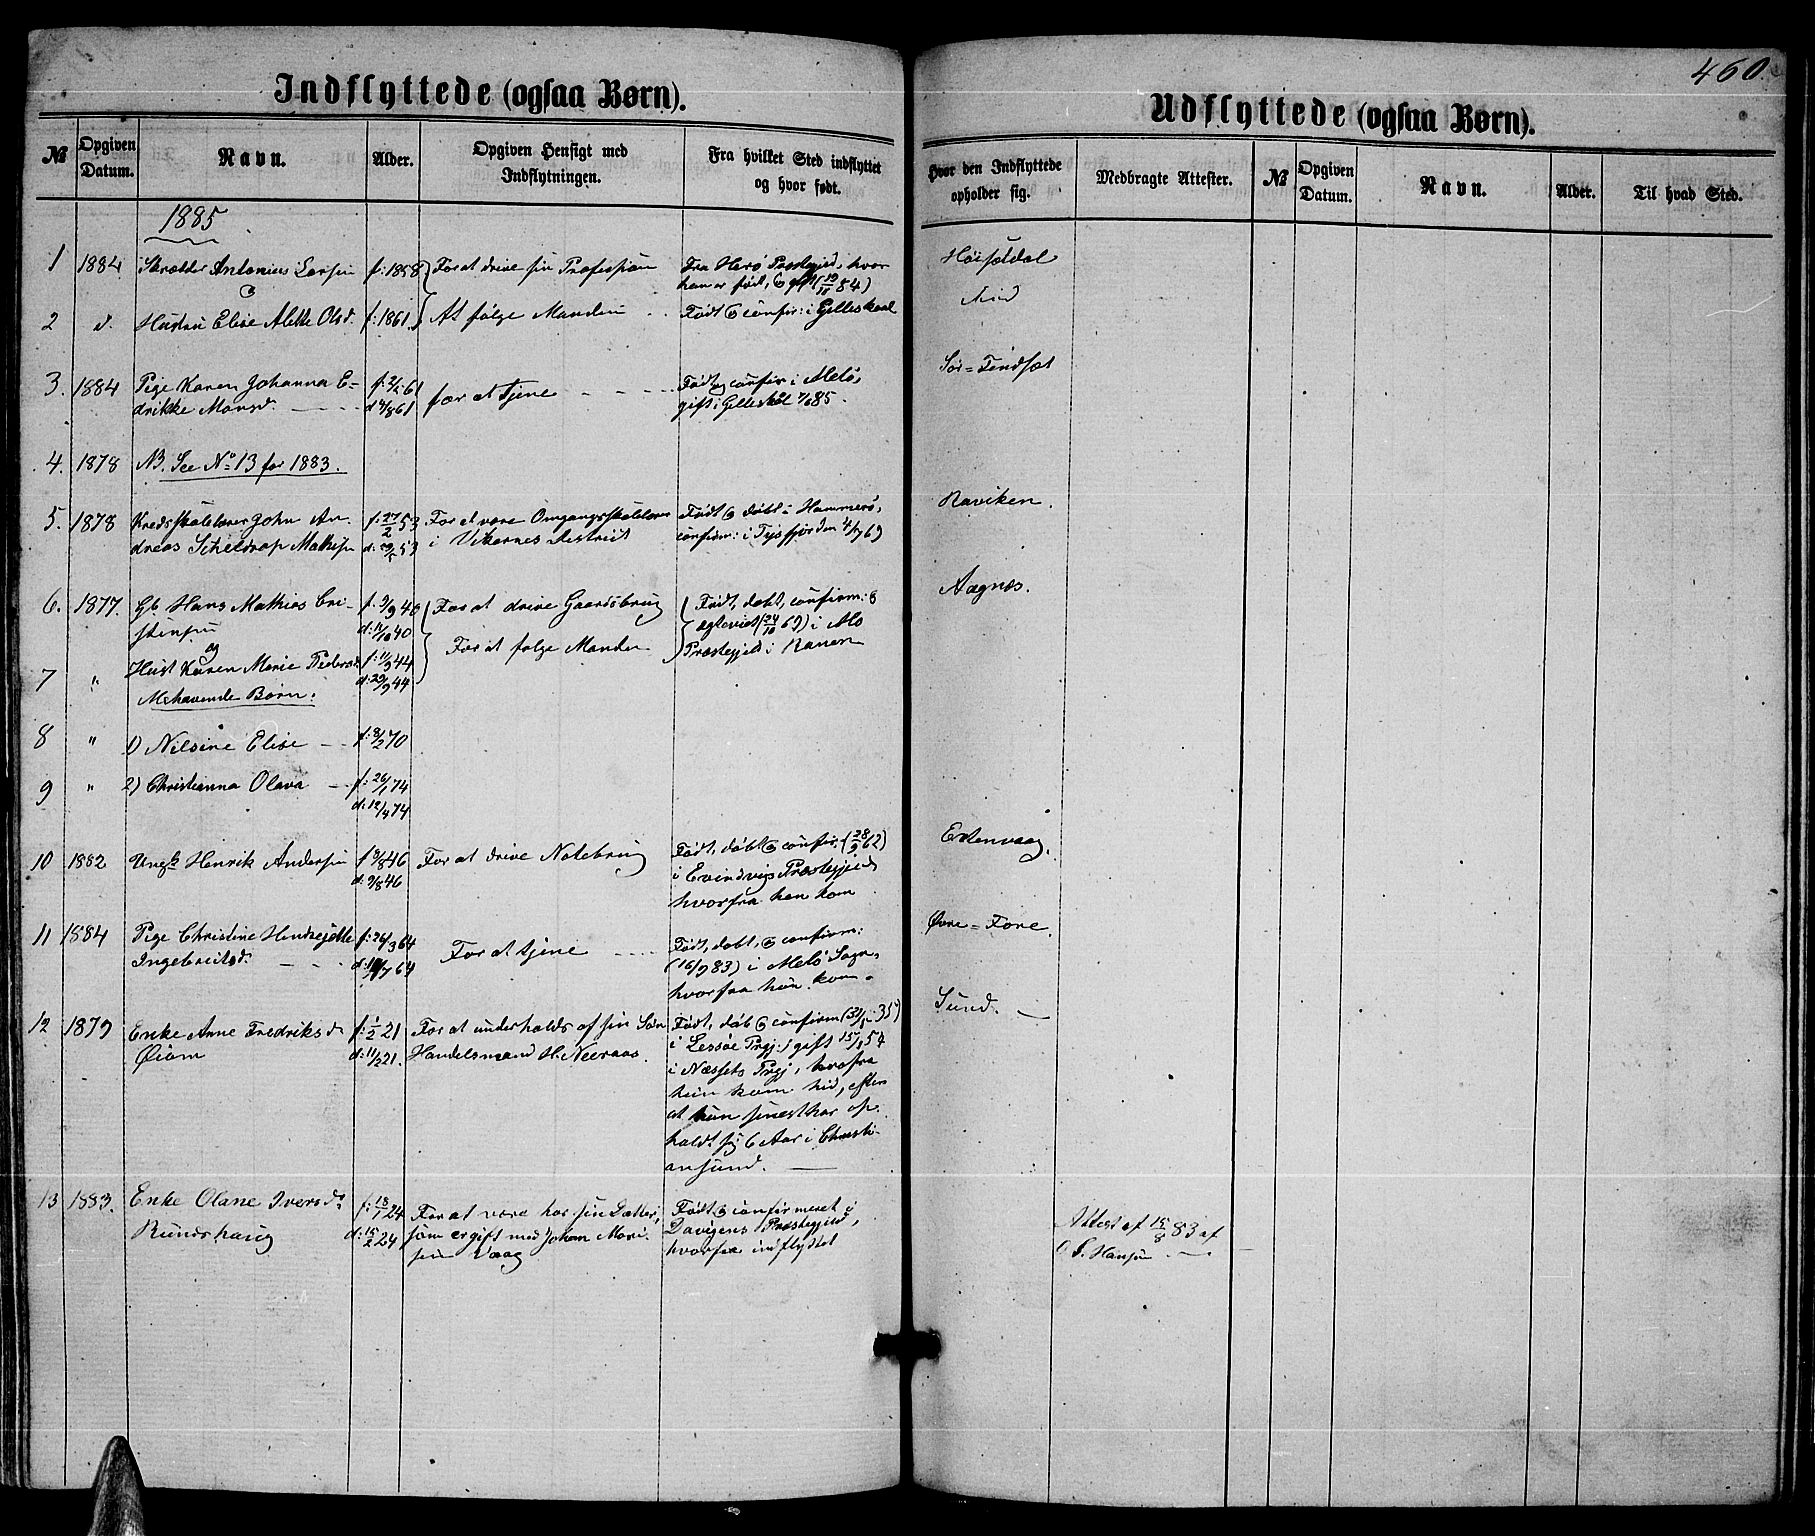 460.
Indflyttede (ogsaa Børn).
Udflyttede (ogsaa Børn).
№
Opgiven Datum.
Navn.
Alder.
Opgiven Hensigt med Indflytningen.
Fra hvilket Sted indflyttet og hvor født.
Hvor den Indflyttede opholder sig.
Medbragte Attester.
№
Opgiven Datum.
Navn.
Alder.
Til hvad Sted.
1885
1 1884 Skrædder Antonius f: 1858 For at drive sin Profession Fra Herø Præstegjeld, hvor
han er født, & gift
2 d. Hustru Elise Alette Olsd. f: 1861 At følge Manden Født & confir: i Gilleskaal
3. 1884 Pige Karen Johanna E- for at tjene Født og confir i Melø,
drikke Monsd. gift i Gilleskål
Sør-
4. 1878 NB. See No 13 for 1883.
5. 1878 Kredsskolelærer John An- f: 27/2 53 For at være Omgangsskolelærer Født & døbt i Hammerø, Raviken
dreas Scheldrap Mathis i Vikernes District confirm: i Tysfjorden 4/7 69
6. 1877. Gb Hans Mathias Cri- f: 9/9 40 For at drive Gaardsbrug Født, døbt, confirm: & Aagnes.
stinsen d: 11/10 40 ægteviet (24/10 69) i Mo
og For at følge Manden Præstegjeld i Ranen
7 " Hust Karen Marie Peders f: 11/9 44
d: 29/9 44
Mehavende Børn:
8 " 1) Nilsine Elise f: 8/2 70
9 " 2) Christianna Olava f: 26/1 74
d: 12/4 74
10 1882 Ungk Henrik Andersen f 3/8 46 For at drive Notebrug Født, døbt & confir. (28/9 62)
d: 9/8 46 i Evindvigs Præstegjeld
hvorfra han kom
11 1884 Pige Christine f: 26/3 64 For at tjene Født, døbt, & confirm: Øvre-Fore.
Ingebreitsd. (16/9 83) i Melø Sogn,
hvorfra hun kom.
12 1879 Enke Anne Fredriksd f: 1/2 21 For at underholds af sin Søn Født, døb & confirm Sund.
Øiom d: 11/2 21. Handelsmand H. Neeraas. i Lessøe Prgj: gift
i Næssets Prgj, hvofra
hun kom hid, efter
at hun senest har op-
holdt sig 6 Aar i Christi-
ansund.
13 1883. Enke Olane Iversd. f: 18/1 24 For at være hos sin Datter, Født & confirmeret i
Rundhaug d: 15/2 24 som er gift med Johan Mari- Davigens Præstegjeld,
sen Vaag hvorfra indflyttet
Attest af 15/8 83 af
O S. Hansen